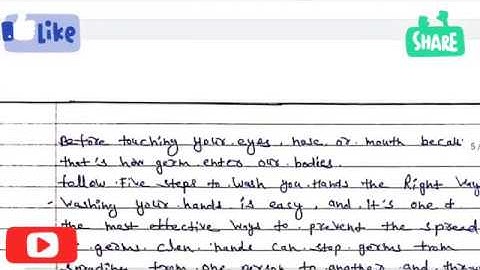 Like
SHARE
Before touching your eyes, nose or mouth becau
5/
that's how germ enter our bodies.
follow Five steps to wash you Hands the Right Way
Washing your hands is easy, and it's one of
the most effective ways to prevent the spread
germs. Clen hands can stop germs from
spreading from one person to another and throu